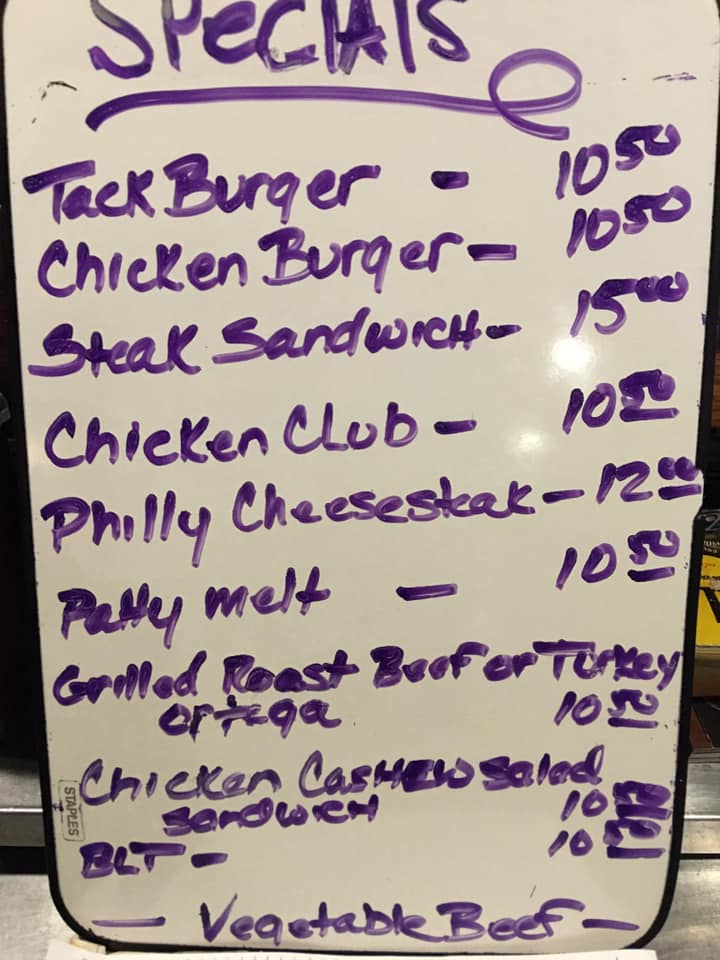 SPECIALS
Tack Burger - 10 50
Chicken Burger - 10 50
Steak Sandwich - 15 00
Chicken Club - 10 50
Philly Cheesesteak - 12 00
Patty melt - 10 50
Grilled Roast Beef or Turkey
Ortega 10 50
Chicken Cashew Salad
Sandwich 10 50
BLT - 10 50
- Vegetable Beef -
STAPLES